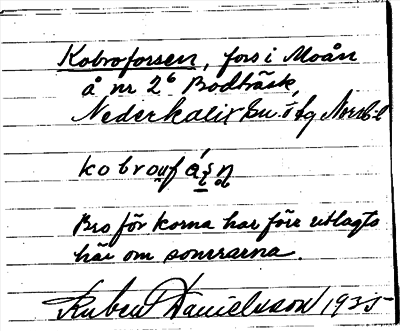 Kobroforsen, fors i Moån
å nr 2⁶ Bodträsk,
Nederkalix sn. i
kobro
Bro för korna har förr utlagts
här om somrarna.
Ruben Danielsson 1935